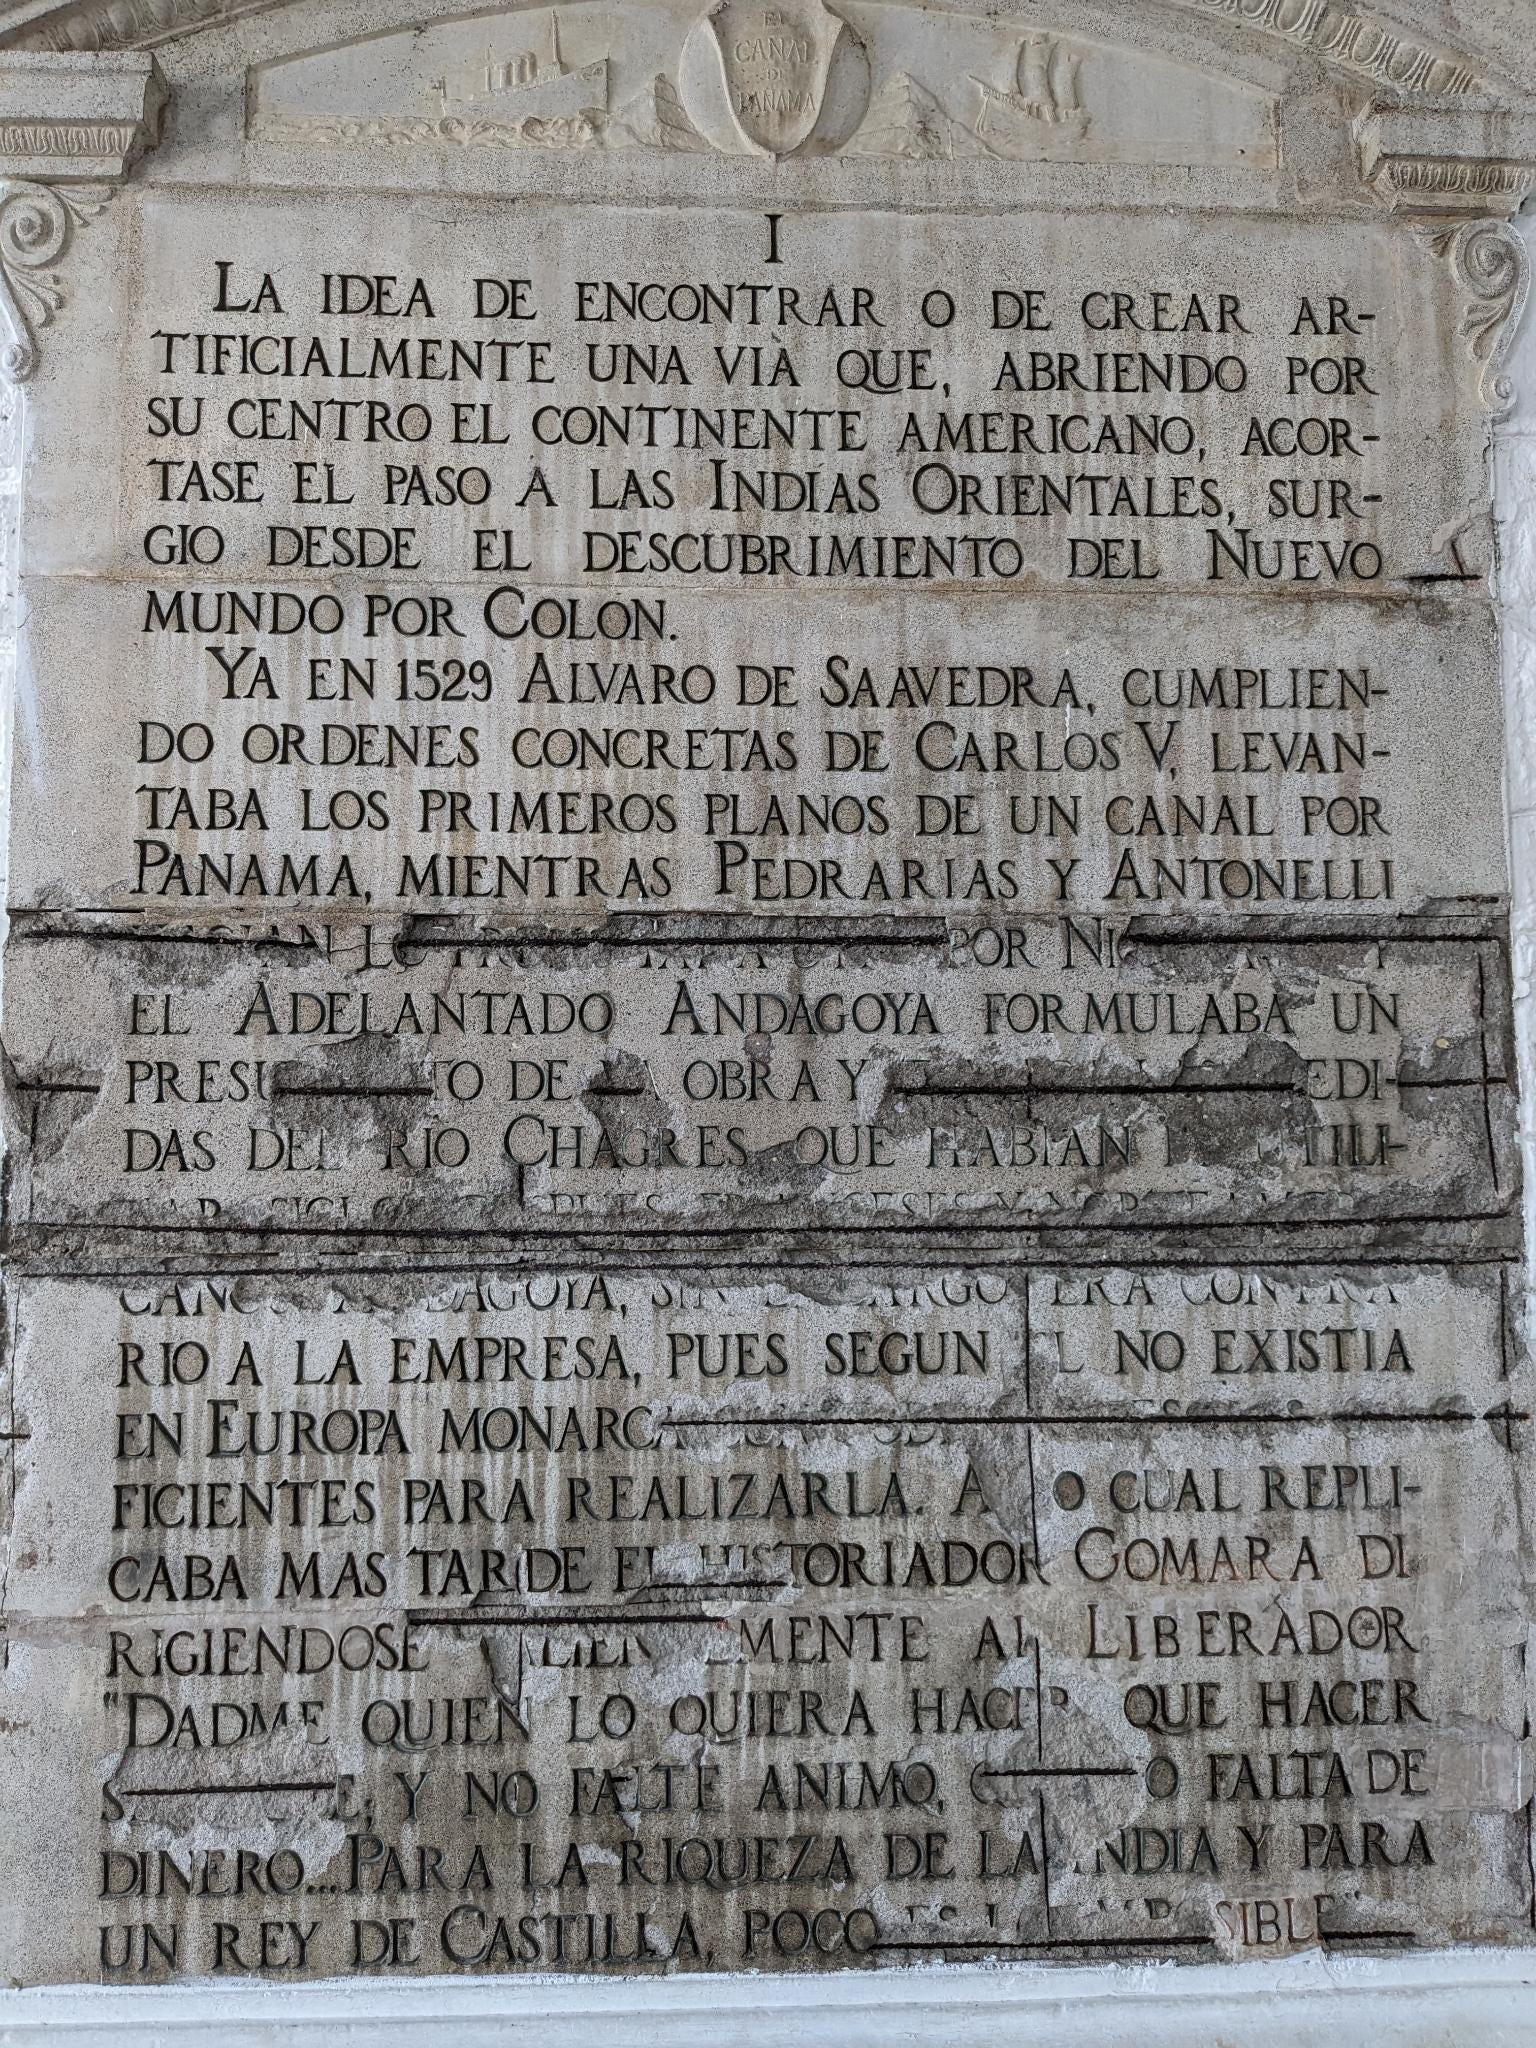 EL
CANAL
DE
PANAMA
I
LA IDEA DE ENCONTRAR O DE CREAR AR-
TIFICIALMENTE UNA VIÀ QUE, ABRIENDO POR
SU CENTRO EL CONTINENTE AMERICANO, ACOR-
TASE EL PASO A LAS INDIAS ORIENTALES, SUR-
GIO DESDE EL DESCUBRIMIENTO DEL NUEVO
MUNDO POR COLON.
YA EN 1529 ALVARO DE SAAVEDRA, CUMPLIEN-
DO ORDENES CONCRETAS DE CARLOS V, LEVAN-
TABA LOS PRIMEROS PLANOS DE UN CANAL POR
PANAMA, MIENTRAS PEDRARIAS Y ANTONELLI
POR
EL ADELANTADO ANDAGOYA FORMULABA UN
DE OBRA Y
DAS DEL RIO CHAGRES QUE HABIAN UTILI-
SIGLOS DESPUES FRANCESES Y NORTEAMERI
ANDAGOYA, SIN EMBARGO ERA CONTRA
RIO A LA EMPRESA, PUES SEGUN EL NO EXISTIA
EN EUROPA MONARCA
FICIENTES PARA REALIZARLA. A LO CUAL REPLI-
CABA MAS TARDE EL HISTORIADOR GOMARA DI
RIGIENDOSE AL LIBERADOR
"DADME QUIEN LO QUIERA HACER QUE HACER
Y NO FALTE ANIMO, NO FALTA DE
DINERO...PARA LA RIQUEZA DE LA INDIA Y PARA
UN REY DE CASTILLA, POCO ES LO IMPOSIBLE"